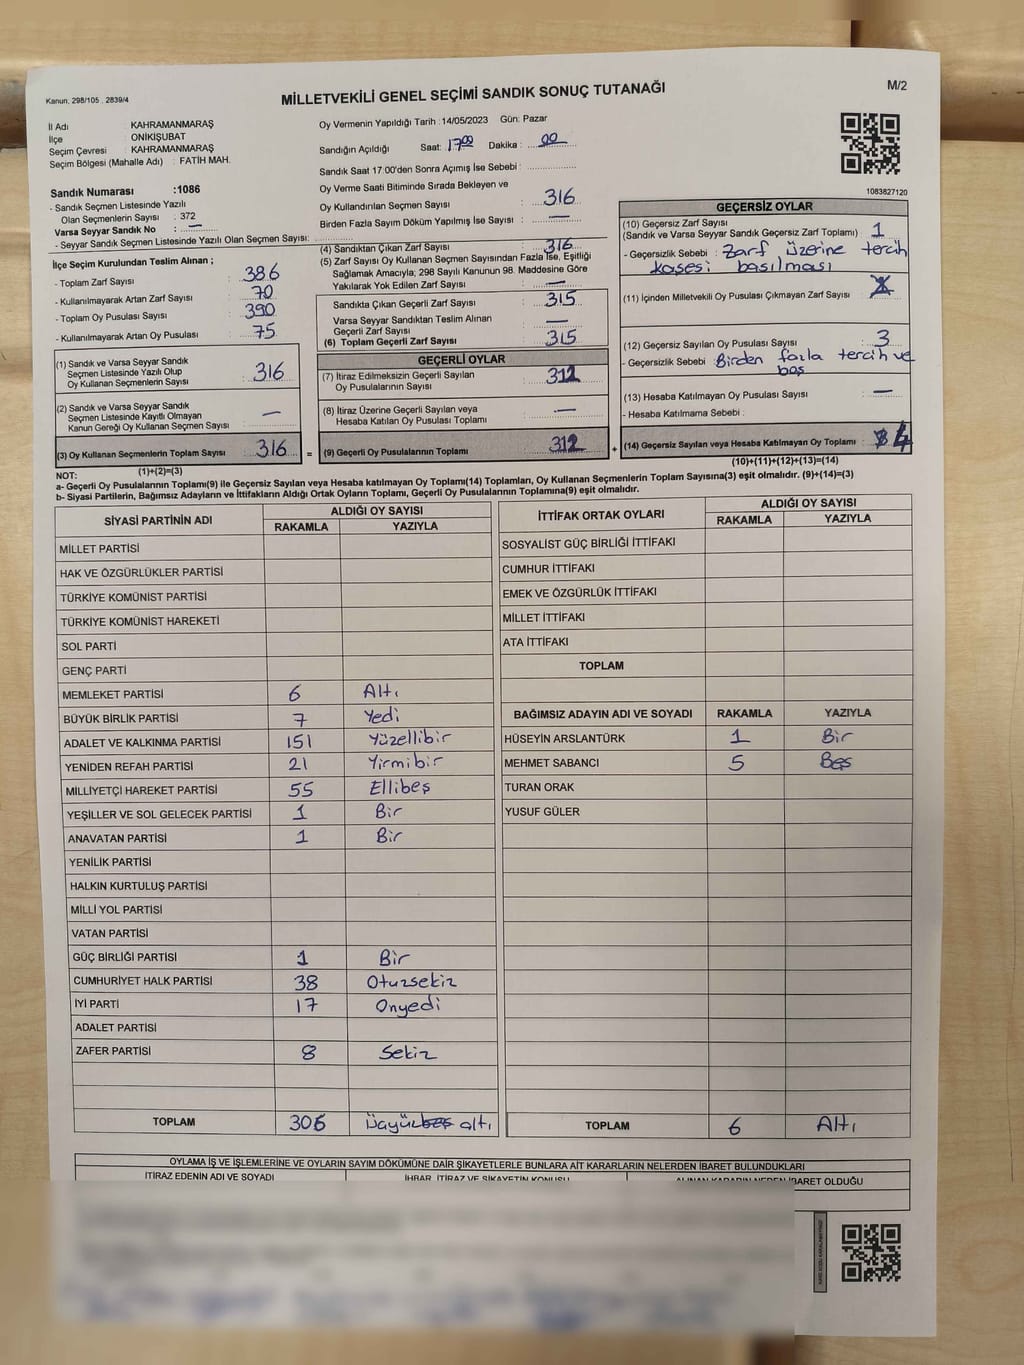 Kanun. 298/105 . 2839/4
MİLLETVEKİLİ GENEL SEÇİMİ SANDIK SONUÇ TUTANAĞI
M/2
İl Adı : KAHRAMANMARAŞ
İlçe : ONİKİŞUBAT
Seçim Çevresi : KAHRAMANMARAŞ
Seçim Bölgesi (Mahalle Adı) : FATİH MAH.
Sandık Numarası :1086
- Sandık Seçmen Listesinde Yazılı
Olan Seçmenlerin Sayısı : 372
Varsa Seyyar Sandık No : —
- Seyyar Sandık Seçmen Listesinde Yazılı Olan Seçmen Sayısı:
Oy Vermenin Yapıldığı Tarih :14/05/2023 Gün: Pazar
Sandığın Açıldığı Saat: 17:00 Dakika : 00
Sandık Saat 17:00'den Sonra Açımış İse Sebebi :
Oy Verme Saati Bitiminde Sırada Bekleyen ve
Oy Kullandırılan Seçmen Sayısı : 316
Birden Fazla Sayım Döküm Yapılmış İse Sayısı : —
1083827120
İlçe Seçim Kurulundan Teslim Alınan ;
- Toplam Zarf Sayısı : 386
- Kullanılmayarak Artan Zarf Sayısı : 70
- Toplam Oy Pusulası : 390
- Kullanılmayarak Artan Oy Pusulası : 75
(1) Sandık ve Varsa Seyyar Sandık
Seçmen Listesinde Yazılı Olup
Oy Kullanan Seçmenlerin Sayısı : 316
(2) Sandık ve Varsa Seyyar Sandık
Seçmen Listesinde Kayıtlı Olmayan
Kanun Gereği Oy Kullanan Seçmen Sayısı : —
(3) Oy Kullanan Seçmenlerin Toplam Sayısı : 316 =
(1)+(2)=(3)
(4) Sandıktan Çıkan Zarf Sayısı : 316
(5) Zarf Sayısı Oy Kullanan Seçmen Sayısından Fazla İse, Eşitliği
Sağlamak Amacıyla; 298 Sayılı Kanunun 98. Maddesine Göre
Yakılarak Yok Edilen Zarf Sayısı : —
Sandıkta Çıkan Geçerli Zarf Sayısı : 315
Varsa Seyyar Sandıktan Teslim Alınan
Geçerli Zarf Sayısı : —
(6) Toplam Geçerli Zarf Sayısı : 315
GEÇERLİ OYLAR
(7) İtiraz Edilmeksizin Geçerli Sayılan
Oy Pusulalarının Sayısı : 312
(8) İtiraz Üzerine Geçerli Sayılan veya
Hesaba Katılan Oy Pusulası Toplamı : —
(9) Geçerli Oy Pusulalarının Toplamı : 312 +
GEÇERSİZ OYLAR
(10) Geçersiz Zarf Sayısı
(Sandık ve Varsa Seyyar Sandık Geçersiz Zarf Toplamı) : 1
- Geçersizlik Sebebi : Zarf üzerine tercih
kaşesi basılması
(11) İçinden Milletvekili Oy Pusulası Çıkmayan Zarf Sayısı :
(12) Geçersiz Sayılan Oy Pusulası Sayısı : 3
- Geçersizlik Sebebi Birden fazla tercih ve
boş
(13) Hesaba Katılmayan Oy Pusulası Sayısı : —
- Hesaba Katılmama Sebebi :
(14) Geçersiz Sayılan veya Hesaba Katılmayan Oy Toplamı : 4
(10)+(11)+(12)+(13)=(14)
NOT:
a- Geçerli Oy Pusulasının Toplamı(9) ile Geçersiz Sayılan veya Hesaba katılmayan Oy Toplamı(14) Toplamları, Oy Kullanan Seçmenlerin Toplam Sayısına(3) eşit olmalıdır. (9)+(14)=(3)
b- Siyasi Partilerin, Bağımsız Adayların ve İttifakların Aldığı Ortak Oyların Toplamı, Geçerli Oy Pusulalarının Toplamına(9) eşit olmalıdır.
SİYASİ PARTİNİN ADI ALDIĞI OY SAYISI
RAKAMLA YAZIYLA
MİLLET PARTİSİ
HAK VE ÖZGÜRLÜKLER PARTİSİ
TÜRKİYE KOMÜNİST PARTİSİ
TÜRKİYE KOMÜNİST HAREKETİ
SOL PARTİ
GENÇ PARTİ
MEMLEKET PARTİSİ 6 Altı
BÜYÜK BİRLİK PARTİSİ 7 Yedi
ADALET VE KALKINMA PARTİSİ 151 Yüzellibir
YENİDEN REFAH PARTİSİ 21 Yirmibir
MİLLİYETÇİ HAREKET PARTİSİ 55 Ellibeş
YEŞİLLER VE SOL GELECEK PARTİSİ 1 Bir
ANAVATAN PARTİSİ 1 Bir
YENİLİK PARTİSİ
HALKIN KURTULUŞ PARTİSİ
MİLLİ YOL PARTİSİ
VATAN PARTİSİ
GÜÇ BİRLİĞİ PARTİSİ 1 Bir
CUMHURİYET HALK PARTİSİ 38 Otuzsekiz
İYİ PARTİ 17 Onyedi
ADALET PARTİSİ
ZAFER PARTİSİ 8 Sekiz
TOPLAM 306 altı
İTTİFAK ORTAK OYLARI ALDIĞI OY SAYISI
RAKAMLA YAZIYLA
SOSYALİST GÜÇ BİRLİĞİ İTTİFAKI
CUMHUR İTTİFAKI
EMEK VE ÖZGÜRLÜK İTTİFAKI
MİLLET İTTİFAKI
ATA İTTİFAKI
TOPLAM
BAĞIMSIZ ADAYIN ADI VE SOYADI RAKAMLA YAZIYLA
HÜSEYİN ARSLANTÜRK 1 Bir
MEHMET SABANCI 5 Beş
TURAN ORAK
YUSUF GÜLER
TOPLAM 6 Altı
OYLAMA İŞ VE İŞLEMLERİNE VE OYLARIN SAYIM DÖKÜMÜNE DAİR ŞİKAYETLERLE BUNLARA AİT KARARLARIN NELERDEN İBARET BULUNDUKLARI
İTİRAZ EDENİN ADI VE SOYADI İHBAR, İTİRAZ VE ŞİKAYETİN KONUSU ALINAN KARARIN NEDEN İBARET OLDUĞU